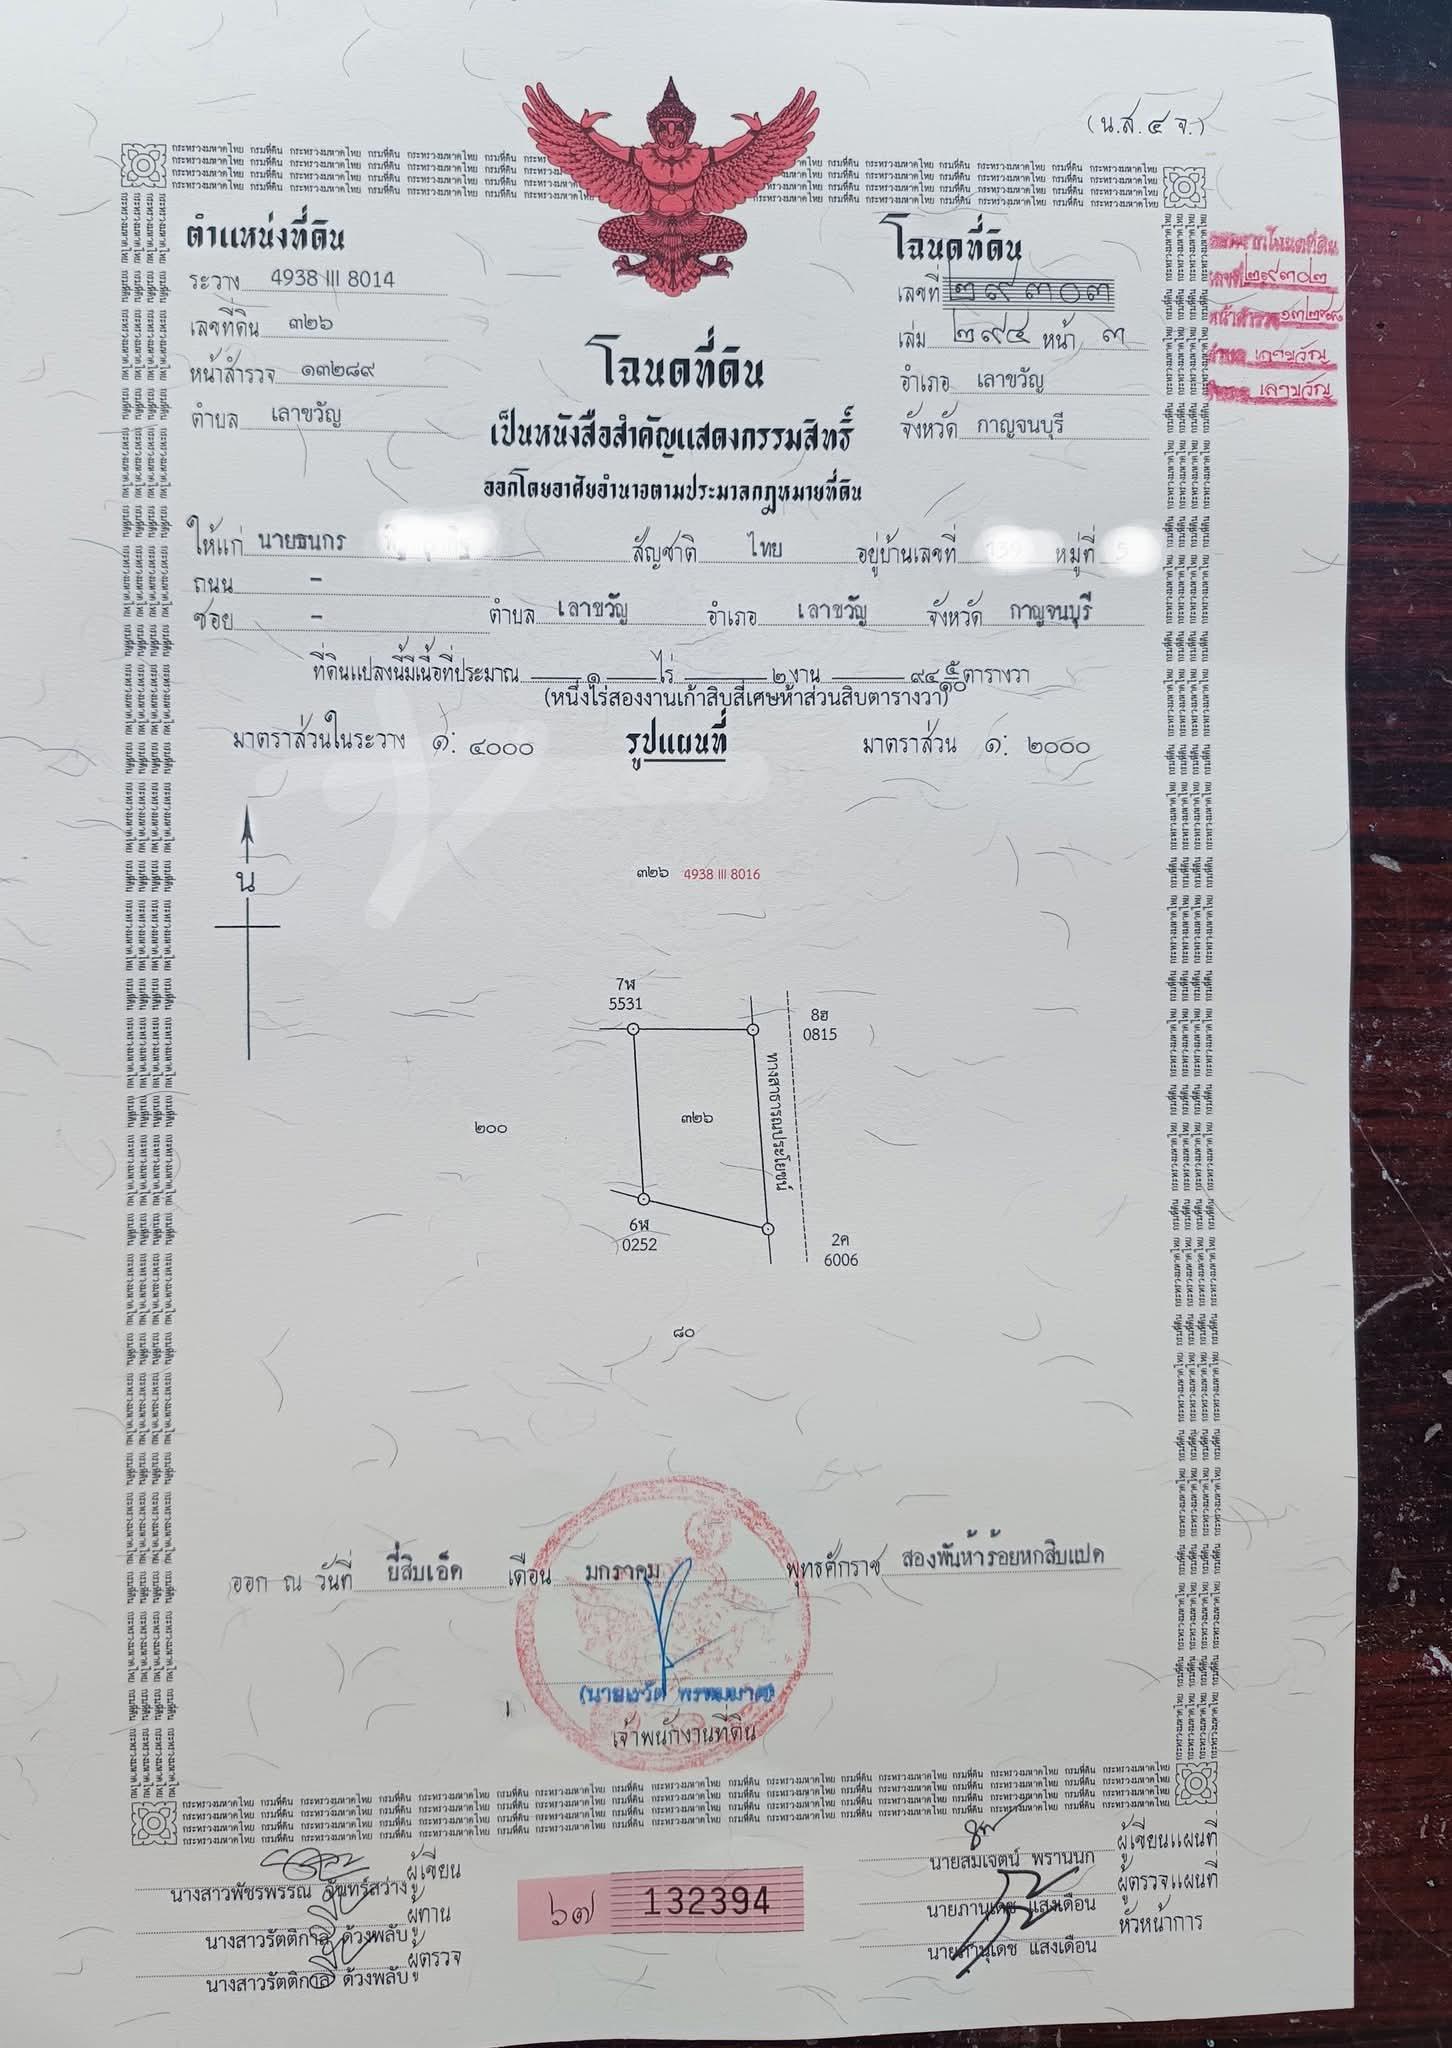 (น.ส.๔ จ.)
ตำแหน่งที่ดิน
ระวาง 4938 III 8014
เลขที่ดิน ๓๒๖
หน้าสำรวจ ๑๓๒๘๙
ตำบล เลาขวัญ
โฉนดที่ดิน
เลขที่ ๒๙๓๐๓
เล่ม ๒๙๔ หน้า ๓
อำเภอ เลาขวัญ
จังหวัด กาญจนบุรี
โฉนดที่ดิน
เลขที่ ๒๙๓๐๒
หน้าสำรวจ ๑๓๒๘๙
เลาขวัญ
เลาขวัญ
โฉนดที่ดิน
เป็นหนังสือสำคัญแสดงกรรมสิทธิ์
ออกโดยอาศัยอำนาจตามประมวลกฎหมายที่ดิน
ให้แก่ นายธนกร สัญชาติ ไทย อยู่บ้านเลขที่ หมู่ที่ 5
ถนน -
ซอย - ตำบล เลาขวัญ อำเภอ เลาขวัญ จังหวัด กาญจนบุรี
ที่ดินแปลงนี้มีเนื้อที่ประมาณ ๑ ไร่ ๒ งาน ๙๔ ๕/๑๐ ตารางวา
(หนึ่งไร่สองงานเก้าสิบสี่เศษห้าส่วนสิบตารางวา)
มาตราส่วนในระวาง ๑: ๔๐๐๐ รูปแผนที่ มาตราส่วน ๑: ๒๐๐๐
น
๓๒๖ 4938 III 8016
7ฬ
5531
8ฮ
0815
ทางสาธารณประโยชน์
๓๒๖
๒๐๐
6ฬ
0252
2ค
6006
๘๐
ออก ณ วันที่ ยี่สิบเอ็ด เดือน มกราคม พุทธศักราช สองพันห้าร้อยหกสิบแปด
เจ้าพนักงานที่ดิน
กระทรวงมหาดไทย กรมที่ดิน
นางสาวพัชรพรรณ จันทร์สว่าง ผู้เขียน
นางสาวรัตติกาล ด้วงพลับ ผู้ทาน
นางสาวรัตติกาล ด้วงพลับ ผู้ตรวจ
๖๗ 132394
นายสมเจตน์ พรานนก ผู้เขียนแผนที่
นายภานุเดช แสงเดือน ผู้ตรวจแผนที่
นายภานุเดช แสงเดือน หัวหน้าการ